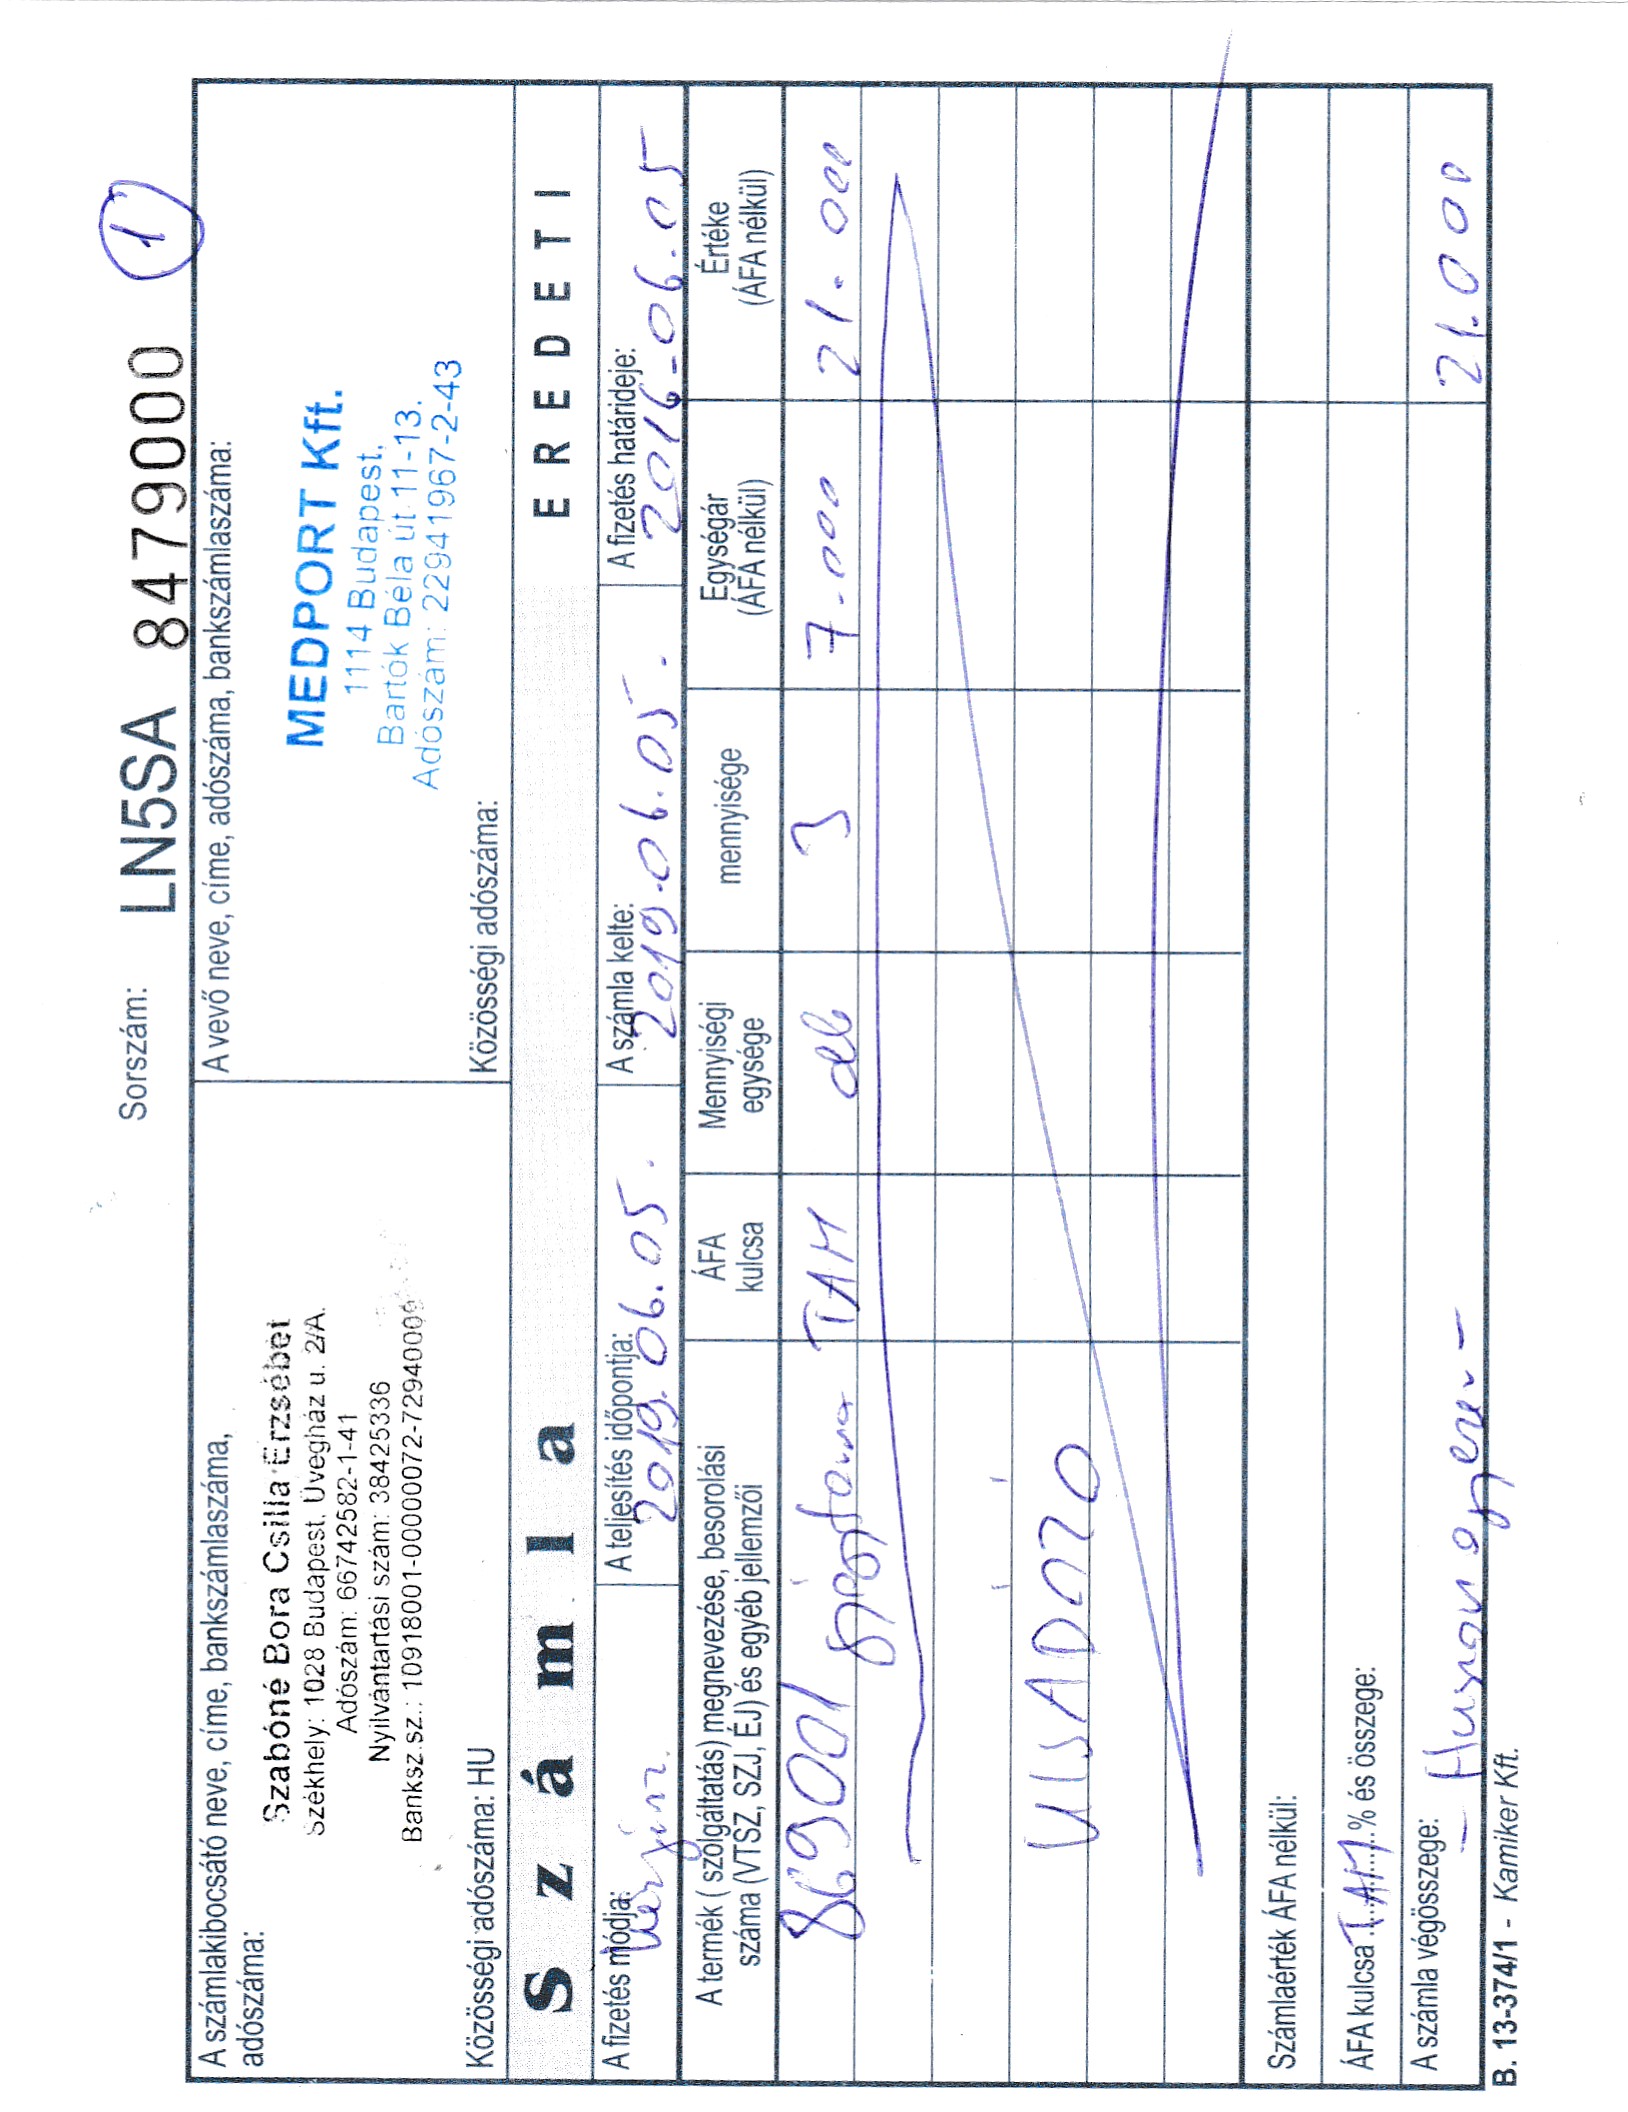 Sorszám: LN5SA 8479000 1
A számlakibocsátó neve, címe, bankszámlaszáma,
adószáma:
Szabóné Bora Csilla Erzsébet
Székhely: 1028 Budapest, Üvegház u. 2/A.
Adószám: 66742582-1-41
Nyilvántartási szám: 38425336
Banksz.sz.: 10918001-00000072-72940006
Közösségi adószáma: HU
A vevő neve, címe, adószáma, bankszámlaszáma:
MEDPORT Kft.
1114 Budapest,
Bartók Béla út 11-13.
Adószám: 22941967-2-43
Közösségi adószáma:
Számla EREDETI
A fizetés módja: A teljesítés időpontja: A számla kelte: A fizetés határideje:
2019.06.05. 2019.06.05. 2016-06.05
A termék ( szolgáltatás) megnevezése, besorolási
száma (VTSZ, SZJ, ÉJ) és egyéb jellemzői
ÁFA
kulcsa
Mennyiségi
egysége
mennyisége
Egységár
(ÁFA nélkül)
Értéke
(ÁFA nélkül)
869001 TAM db 3 7.000 21.000
Számlaérték ÁFA nélkül:
ÁFA kulcsa TAM % és összege:
A számla végösszege: 21.000
B. 13-374/1 - Kamiker Kft.